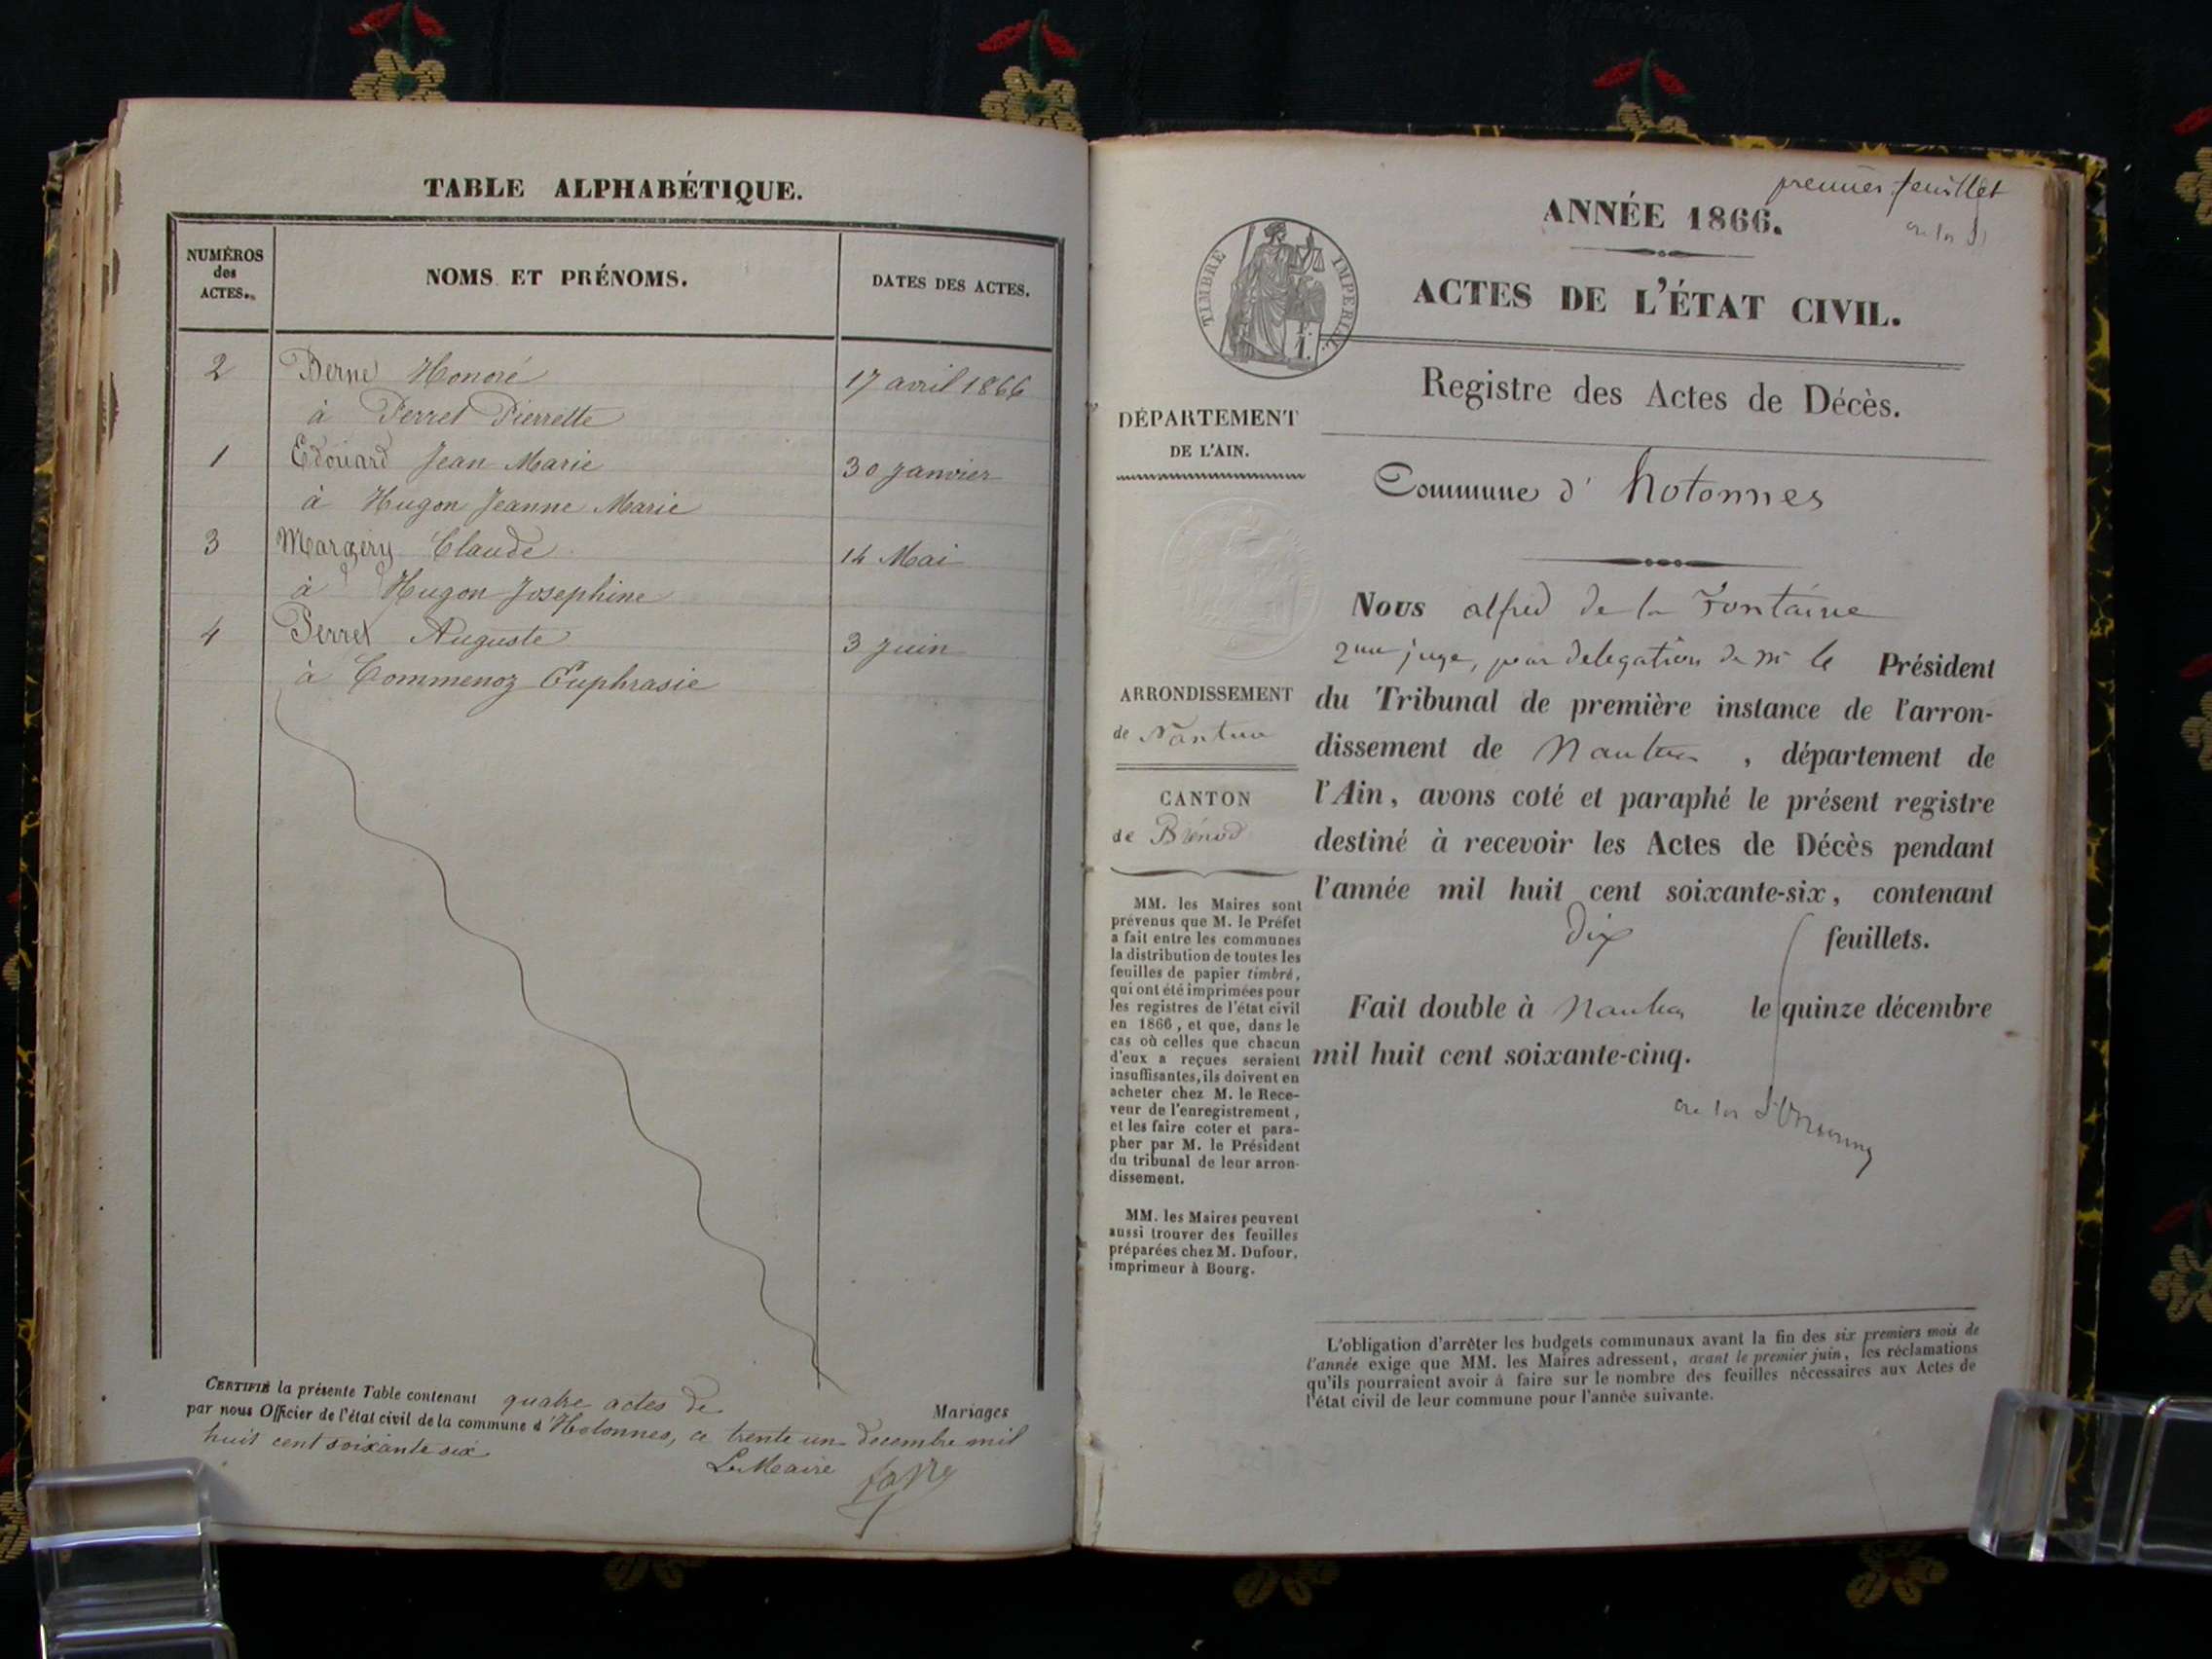 TABLE ALPHABÉTIQUE.
NUMÉROS
des
ACTES.
NOMS ET PRÉNOMS.
DATES DES ACTES.
2 Berne Honoré 17 avril 1866
à Perret Pierrette
1 Edouard Jean Marie 30 Janvier
à Hugon Jeanne Marie
3 Margery Claude 14 Mai
à Hugon Josephine
4 Perret Auguste 3 Juin
à Commenoz Euphrasie
CERTIFIÉ la présente Table contenant quatre actes de Mariages
par nous Officier de l'état civil de la commune d'Hotonnes, ce trente un decembre mil
huit cent soixante six
Le Maire
premier feuillet
ANNÉE 1866.
TIMBRE IMPERIAL
ACTES DE L'ÉTAT CIVIL.
Registre des Actes de Décès.
DÉPARTEMENT
DE L'AIN.
Commune d' hotonnes
ARRONDISSEMENT
de Nantua
CANTON
de Brénod
MM. les Maires sont
prévenus que M. le Préfet
a fait entre les communes
la distribution de toutes les
feuilles de papier timbré,
qui ont été imprimées pour
les registres de l'état civil
en 1866, et que, dans le
cas où celles que chacun
d'eux a reçues seraient
insuffisantes, ils doivent en
acheter chez M. le Rece-
veur de l'enregistrement,
et les faire coter et para-
pher par M. le Président
du tribunal de leur arron-
dissement.
MM. les Maires peuvent
aussi trouver des feuilles
préparées chez M. Dufour,
imprimeur à Bourg.
Nous alfred de la Fontaine
2me juge, par delegation de Mr le Président
du Tribunal de première instance de l'arron-
dissement de Nantua, département de
l'Ain, avons coté et paraphé le présent registre
destiné à recevoir les Actes de Décès pendant
l'année mil huit cent soixante-six, contenant
dix feuillets.
Fait double à Nantua le quinze décembre
mil huit cent soixante-cinq.
L'obligation d'arrêter les budgets communaux avant la fin des six premiers mois de
l'année exige que MM. les Maires adressent, avant le premier juin, les réclamations
qu'ils pourraient avoir à faire sur le nombre des feuilles nécessaires aux Actes de
l'état civil de leur commune pour l'année suivante.